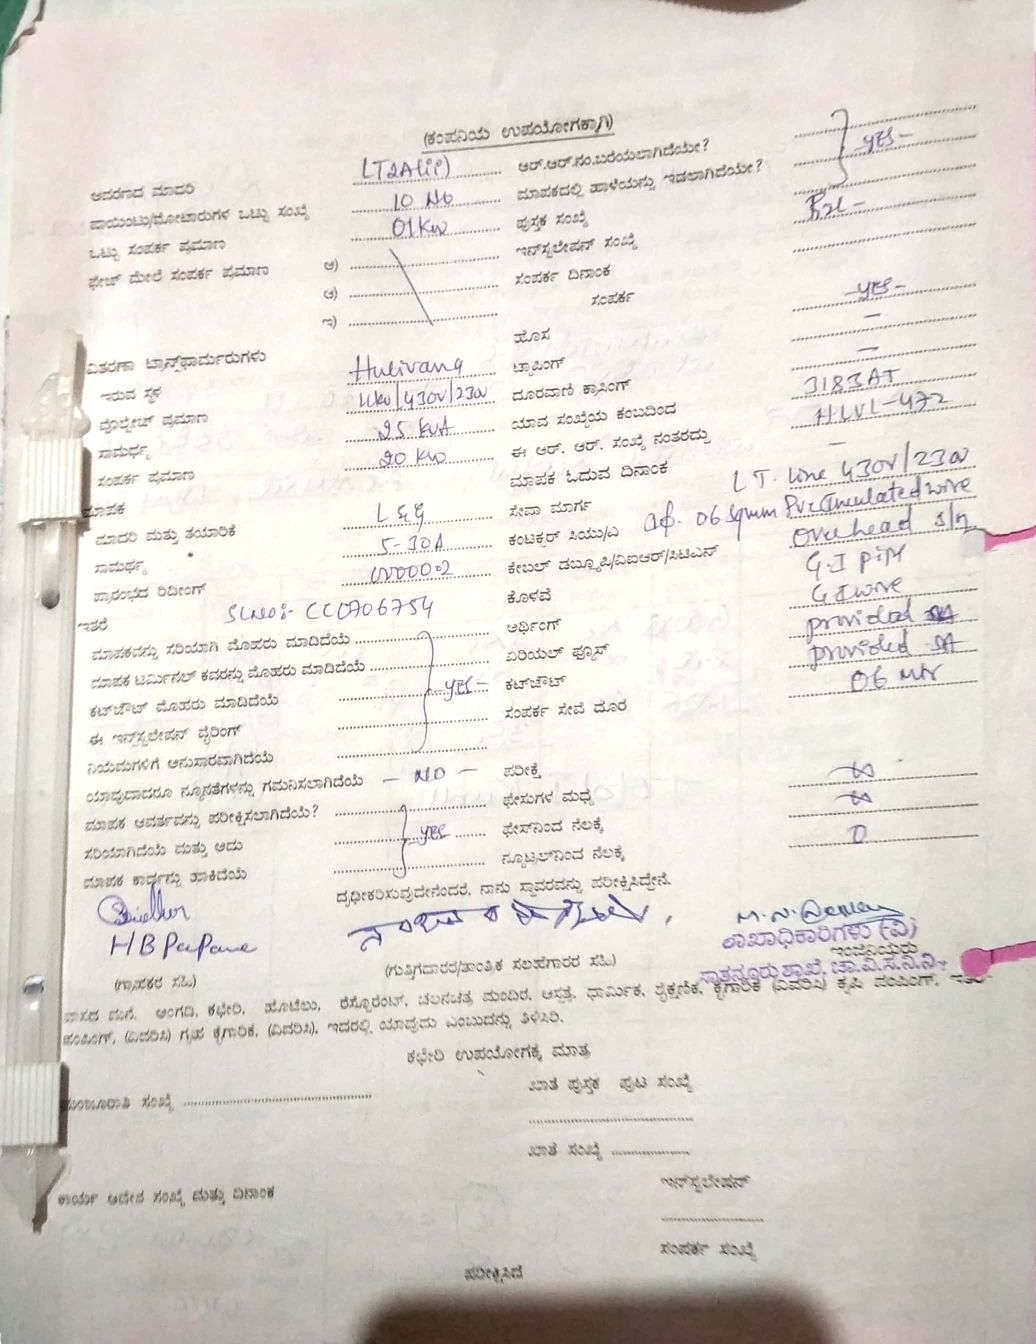 (ಕಂಪನಿಯ ಉಪಯೋಗಕ್ಕಾಗಿ)
ಆವರಣದ ಮಾದರಿ LT2A(ii) ಆರ್.ಆರ್.ನಂ.ಬರೆಯಲಾಗಿದೆಯೇ?
ಪಾಯಿಂಟು/ಮೋಟಾರುಗಳ ಒಟ್ಟು ಸಂಖ್ಯೆ 10 No ಮಾಪಕದಲ್ಲಿ ಹಾಳೆಯನ್ನು ಇಡಲಾಗಿದೆಯೇ? -YES-
ಒಟ್ಟು ಸಂಪರ್ಕ ಪ್ರಮಾಣ 01 KW ಪುಸ್ತಕ ಸಂಖ್ಯೆ
ಫೇಜ್ ಮೇಲೆ ಸಂಪರ್ಕ ಪ್ರಮಾಣ ಅ) ಇನ್‌ಸ್ಟಲೇಷನ್ ಸಂಖ್ಯೆ
ಆ) ಸಂಪರ್ಕ ದಿನಾಂಕ
ಇ) ಸಂಪರ್ಕ
ವಿತರಣಾ ಟ್ರಾನ್ಸ್‌ಫಾರ್ಮರುಗಳು ಹೊಸ -YES-
ಇರುವ ಸ್ಥಳ ಟ್ಯಾಪಿಂಗ್ -
ವೊಲ್ಟೇಜ್ ಪ್ರಮಾಣ 11KV/430V/230V ದೂರವಾಣಿ ಕ್ರಾಸಿಂಗ್ -
ಸಾಮರ್ಥ್ಯ 25 KVA ಯಾವ ಸಂಖ್ಯೆಯ ಕಂಬದಿಂದ 3183AT
ಸಂಪರ್ಕ ಪ್ರಮಾಣ 20 KW ಈ ಆರ್. ಆರ್. ಸಂಖ್ಯೆ ನಂತರದ್ದು HLVL-472
ಮಾಪಕ ಮಾಪಕ ಓದುವ ದಿನಾಂಕ -
ಮಾದರಿ ಮತ್ತು ತಯಾರಿಕೆ L&G ಸೇವಾ ಮಾರ್ಗ LT. line 430V/230V
ಸಾಮರ್ಥ್ಯ 5-30A ಕಂಟಕ್ಟರ್ ಸಿಯು/ಎ 06 sqmm PVC Insulated wire
ಪ್ರಾರಂಭದ ರಿಡಿಂಗ್ 000002 ಕೇಬಲ್ ಡಬ್ಲ್ಯೂಪಿ/ವಿಐಆರ್/ಸಿಟಿಎನ್ overhead
ಇತರೆ SLNO:- CC0706754 ಕೊಳವೆ G.I pipe
ಮಾಪಕವನ್ನು ಸರಿಯಾಗಿ ಮೊಹರು ಮಾಡಿದೆಯೆ ಅರ್ಥಿಂಗ್ G I wire
ಮಾಪಕ ಟರ್ಮಿನಲ್ ಕವರನ್ನು ಮೊಹರು ಮಾಡಿದೆಯೆ ಏರಿಯಲ್ ಫ್ಯೂಸ್ provided
ಕಟ್‌ಔಟ್ ಮೊಹರು ಮಾಡಿದೆಯೆ -YES- ಕಟ್‌ಔಟ್ provided
ಈ ಇನ್‌ಸ್ಟಲೇಷನ್ ವೈರಿಂಗ್ ಸಂಪರ್ಕ ಸೇವೆ ದೂರ 06 Mtr
ನಿಯಮಗಳಿಗೆ ಅನುಸಾರವಾಗಿದೆಯೆ
ಯಾವುದಾದರೂ ನ್ಯೂನತೆಗಳನ್ನು ಗಮನಿಸಲಾಗಿದೆಯೆ - NO - ಪರೀಕ್ಷೆ
ಮಾಪಕ ಆವರ್ತವನ್ನು ಪರೀಕ್ಷಿಸಲಾಗಿದೆಯೆ? ಫೇಸುಗಳ ಮಧ್ಯೆ ∞
ಸರಿಯಾಗಿದೆಯೆ ಮತ್ತು ಅದು YES ಫೇಸ್‌ನಿಂದ ನೆಲಕ್ಕೆ ∞
ಮಾಪಕ ಕಾರ್ಡನ್ನು ಹಾಕಿದೆಯೆ ನ್ಯೂಟ್ರಲ್‌ನಿಂದ ನೆಲಕ್ಕೆ 0
ದೃಢೀಕರಿಸುವುದೇನೆಂದರೆ, ನಾನು ಸ್ಥಾವರವನ್ನು ಪರೀಕ್ಷಿಸಿದ್ದೇನೆ.
H B Papane
ಶಾಖಾಧಿಕಾರಿಗಳು (ವಿ)
ಇಂಜಿನಿಯರು
ಸಾತನೂರು ಶಾಖೆ, ಚಾ.ವಿ.ಸ.ನಿ.ನಿ.
(ಗ್ರಾಹಕರ ಸಹಿ) (ಗುತ್ತಿಗೆದಾರರ/ತಾಂತ್ರಿಕ ಸಲಹೆಗಾರರ ಸಹಿ)
ವಾಸದ ಮನೆ, ಅಂಗಡಿ, ಕಛೇರಿ, ಹೊಟೆಲು, ರೆಸ್ಟೋರೆಂಟ್, ಚಲನಚಿತ್ರ ಮಂದಿರ, ಆಸ್ಪತ್ರೆ, ಧಾರ್ಮಿಕ, ಶೈಕ್ಷಣಿಕ, ಕೈಗಾರಿಕೆ (ವಿವರಿಸಿ) ಕೃಷಿ ಪಂಪಿಂಗ್, ಇತರೆ
ಪಂಪಿಂಗ್, (ವಿವರಿಸಿ) ಗೃಹ ಕೈಗಾರಿಕೆ, (ವಿವರಿಸಿ), ಇದರಲ್ಲಿ ಯಾವುದು ಎಂಬುದನ್ನು ತಿಳಿಸಿರಿ.
ಕಛೇರಿ ಉಪಯೋಗಕ್ಕೆ ಮಾತ್ರ
ಮಂಜೂರಾತಿ ಸಂಖ್ಯೆ ಖಾತೆ ಪುಸ್ತಕ ಪುಟ ಸಂಖ್ಯೆ
ಖಾತೆ ಸಂಖ್ಯೆ
ಕಾರ್ಯ ಆದೇಶ ಸಂಖ್ಯೆ ಮತ್ತು ದಿನಾಂಕ ಇನ್‌ಸ್ಟಲೇಷನ್
ಸಂಪರ್ಕ ಸಂಖ್ಯೆ
ಪರೀಕ್ಷಿಸಿದೆ